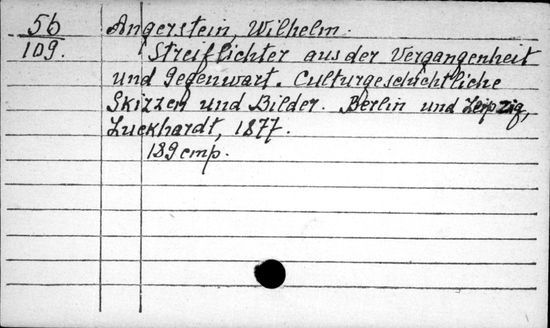 56
109.
Angerstein, Wilhelm.
Streiflichter aus der Vergangenheit
und Gegenwart. Culturgeschichtliche
Skizzen und Bilder. Berlin und Leipzig,
Luckhardt, 1877.
189 стр.